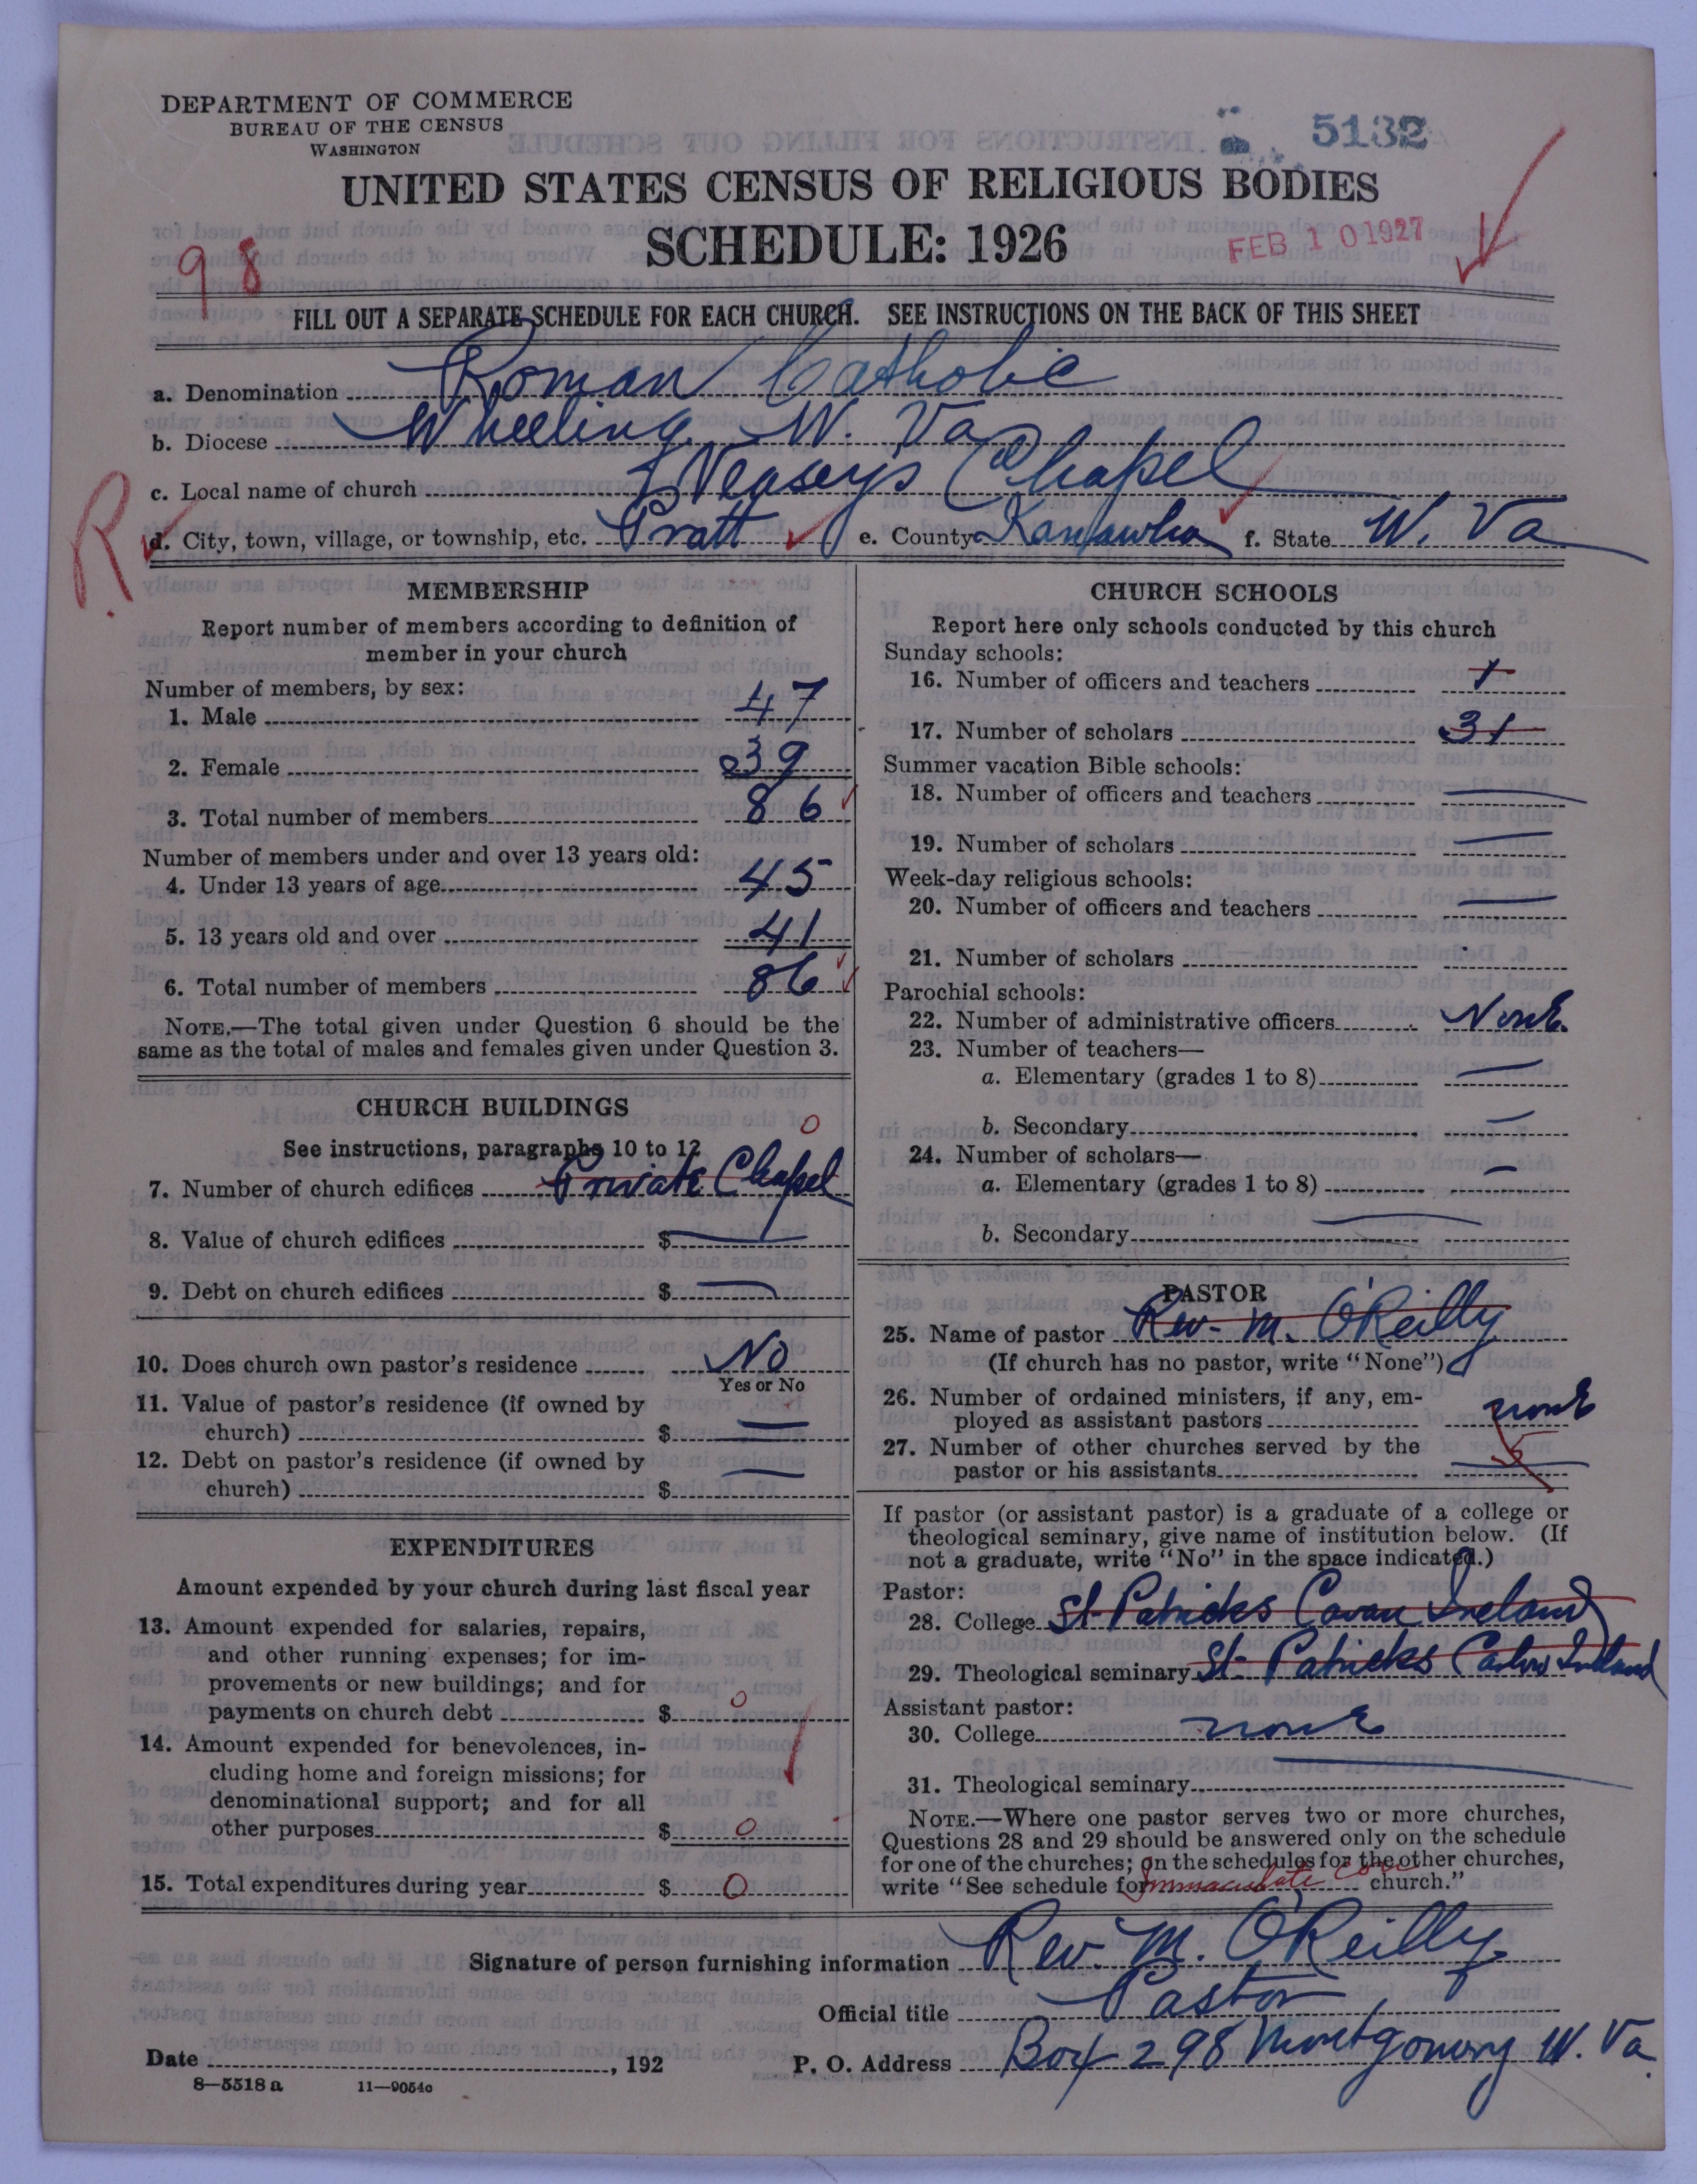 DEPARTMENT OF COMMERCE
BUREAU OF THE CENSUS
WASHINGTON
5132
UNITED STATES CENSUS OF RELIGIOUS BODIES
SCHEDULE: 1926
FEB 10 1927
98
FILL OUT A SEPARATE SCHEDULE FOR EACH CHURCH. SEE INSTRUCTIONS ON THE BACK OF THIS SHEET
a. Denomination Roman Catholic
b. Diocese Wheeling, W. Va
c. Local name of church Chapel
R
d. City, town, village, or township, etc. Pratt e. County Kanawha f. State W. Va
MEMBERSHIP
Report number of members according to definition of
member in your church
Number of members, by sex:
1. Male 47
2. Female 39
3. Total number of members 86
Number of members under and over 13 years old:
4. Under 13 years of age 45
5. 13 years old and over 41
6. Total number of members 86
NOTE.—The total given under Question 6 should be the
same as the total of males and females given under Question 3.
CHURCH BUILDINGS
See instructions, paragraphs 10 to 12
0
7. Number of church edifices Private Chapel
8. Value of church edifices $
9. Debt on church edifices $
10. Does church own pastor's residence No
Yes or No
11. Value of pastor's residence (if owned by
church) $
12. Debt on pastor's residence (if owned by
church) $
EXPENDITURES
Amount expended by your church during last fiscal year
13. Amount expended for salaries, repairs,
and other running expenses; for im-
provements or new buildings; and for
payments on church debt $ 0
14. Amount expended for benevolences, in-
cluding home and foreign missions; for
denominational support; and for all
other purposes $ 0
15. Total expenditures during year $ 0
CHURCH SCHOOLS
Report here only schools conducted by this church
Sunday schools:
16. Number of officers and teachers 1
17. Number of scholars 31
Summer vacation Bible schools:
18. Number of officers and teachers
19. Number of scholars
Week-day religious schools:
20. Number of officers and teachers
21. Number of scholars
Parochial schools:
22. Number of administrative officers None
23. Number of teachers—
a. Elementary (grades 1 to 8)
b. Secondary
24. Number of scholars—
a. Elementary (grades 1 to 8)
b. Secondary
PASTOR
25. Name of pastor Rev. M. O'Reilly
(If church has no pastor, write "None")
26. Number of ordained ministers, if any, em-
ployed as assistant pastors none
27. Number of other churches served by the
pastor or his assistants 5
If pastor (or assistant pastor) is a graduate of a college or
theological seminary, give name of institution below. (If
not a graduate, write "No" in the space indicated.)
Pastor:
28. College St. Patricks Cavan Ireland
29. Theological seminary St. Patricks Carlow Ireland
Assistant pastor:
30. College none
31. Theological seminary
NOTE.—Where one pastor serves two or more churches,
Questions 28 and 29 should be answered only on the schedule
for one of the churches; on the schedules for the other churches,
write "See schedule for Immaculate Conc church."
Signature of person furnishing information Rev. M. O'Reilly
Official title Pastor
Date , 192 P. O. Address Box 298 Montgomery W. Va
8—5518 a 11—9054o